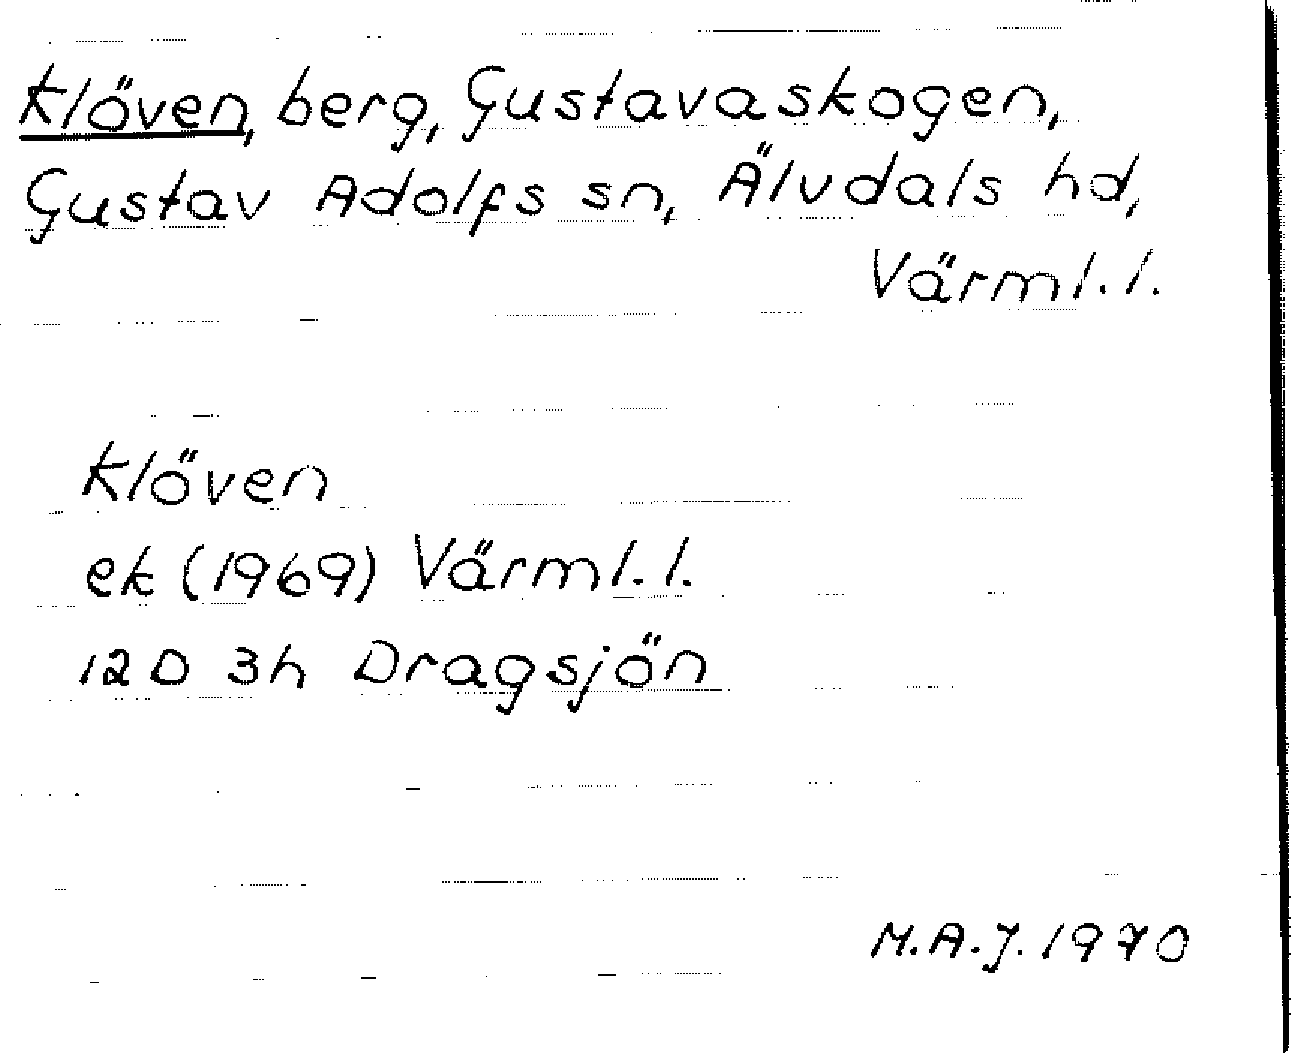 Klöven, berg, Gustavaskogen,
Gustav Adolfs sn, Älvdals hd,
Värml. l.
Klöven
ek (1969) Värml. l.
12 D 3h Dragsjön
M.A.J. 1970